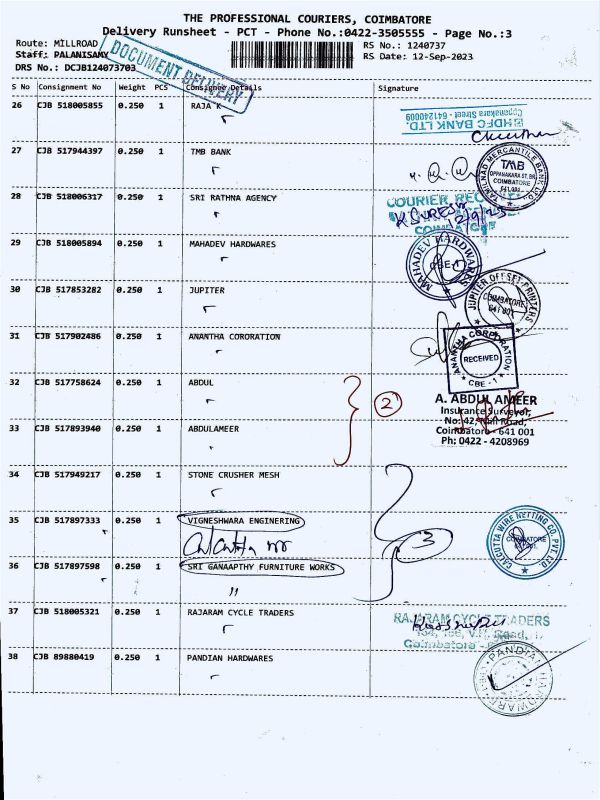 THE PROFESSIONAL COURIERS, COIMBATORE
Delivery Runsheet - PCT - Phone No.:0422-3505555 - Page No.:3
Route: MILLROAD
RS No.: 1240737
Staff: PALANISAMY
RS Date: 12-Sep-2023
DRS No.: DCJB124073703
DOCUMENT DELIVERY
S No Consignment No Weight PCS Consignee Details Signature
26 CJB 518005855 0.250 1 RAJA K
HDFC BANK LTD.
Oppanakara Street - 641240009
27 CJB 517944397 0.250 1 TMB BANK
TAMILNAD MERCANTILE BANK LTD.
TMB
OPPANAKARA ST. BR.
COIMBATORE
641 001
28 CJB 518006317 0.250 1 SRI RATHNA AGENCY
COURIER
K SURESH
29 CJB 518005894 0.250 1 MAHADEV HARDWARES
MAHADEV HARDWARES
CBE-1
30 CJB 517853282 0.250 1 JUPITER
JUPITER OFFSET PRINTERS
COIMBATORE
641 001
31 CJB 517902486 0.250 1 ANANTHA CORORATION
ANANTHA CORPORATION
RECEIVED
CBE - 1
32 CJB 517758624 0.250 1 ABDUL
2
A. ABDUL AMEER
Insurance Surveyor,
No: 42, Mill Road,
Coimbatore - 641 001
Ph: 0422 - 4208969
33 CJB 517893940 0.250 1 ABDULAMEER
34 CJB 517949217 0.250 1 STONE CRUSHER MESH
35 CJB 517897333 0.250 1 VIGNESHWARA ENGINERING
3
CALCUTTA WIRE NETTING CO. PVT LTD.
COIMBATORE
36 CJB 517897598 0.250 1 SRI GANAAPTHY FURNITURE WORKS
"
37 CJB 518005321 0.250 1 RAJARAM CYCLE TRADERS
RAJARAM CYCLE TRADERS
Coimbatore
38 CJB 89880419 0.250 1 PANDIAN HARDWARES
PANDIAN HARDWARE